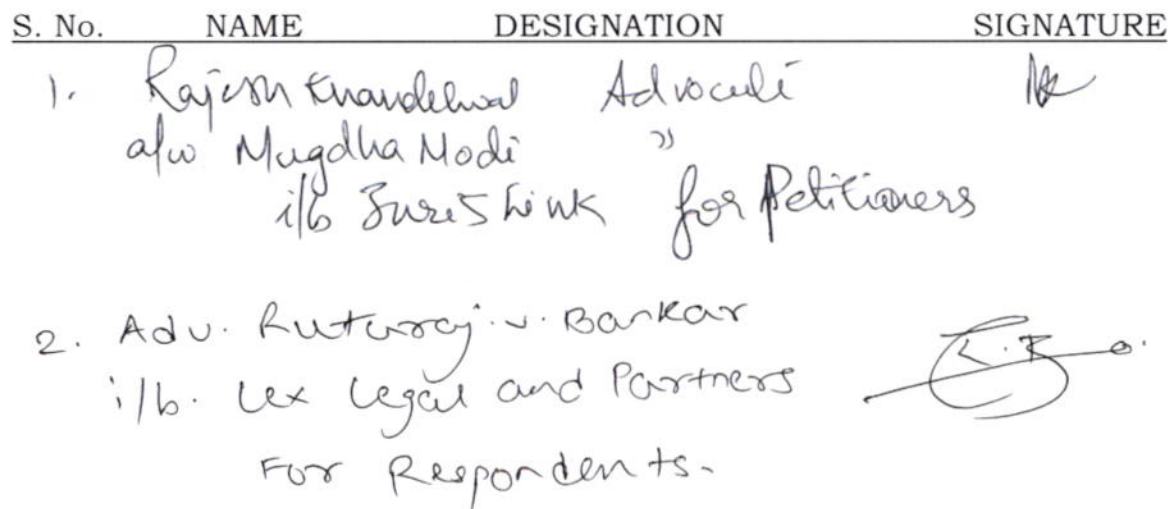 S. No. NAME DESIGNATION SIGNATURE
1. Rajesh Khandelwal Advocate
a/w Mugdha Modi "
i/b Juris Link for Petitioners
2. Adv. Ruturaj. v. Bankar
i/b. Lex Legal and Partners
For Respondents.